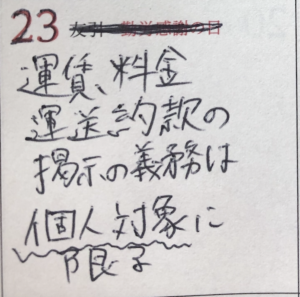 23 友引 勤労感謝の日
運賃、料金
運送約款の
掲示の義務は
個人対象に
限る